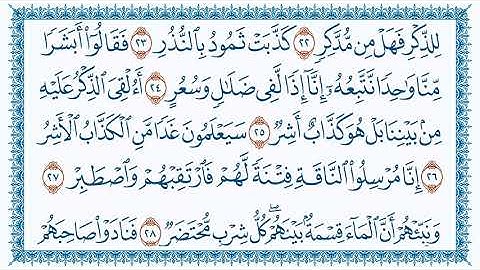 لِلذِّكْرِ فَهَلْ مِن مُّدَّكِرٍ ٢٢ كَذَّبَتْ ثَمُودُ بِالنُّذُرِ ٢٣ فَقَالُوا أَبَشَرًا
مِّنَّا وَاحِدًا نَّتَّبِعُهُ إِنَّا إِذًا لَّفِي ضَلَالٍ وَسُعُرٍ ٢٤ أَءُلْقِيَ الذِّكْرُ عَلَيْهِ
مِن بَيْنِنَا بَلْ هُوَ كَذَّابٌ أَشِرٌ ٢٥ سَيَعْلَمُونَ غَدًا مَّنِ الْكَذَّابُ الْأَشِرُ
٢٦ إِنَّا مُرْسِلُوا النَّاقَةِ فِتْنَةً لَّهُمْ فَارْتَقِبْهُمْ وَاصْطَبِرْ ٢٧
وَنَبِّئْهُمْ أَنَّ الْمَاءَ قِسْمَةٌ بَيْنَهُمْ كُلُّ شِرْبٍ مُّحْتَضَرٌ ٢٨ فَنَادَوْا صَاحِبَهُمْ